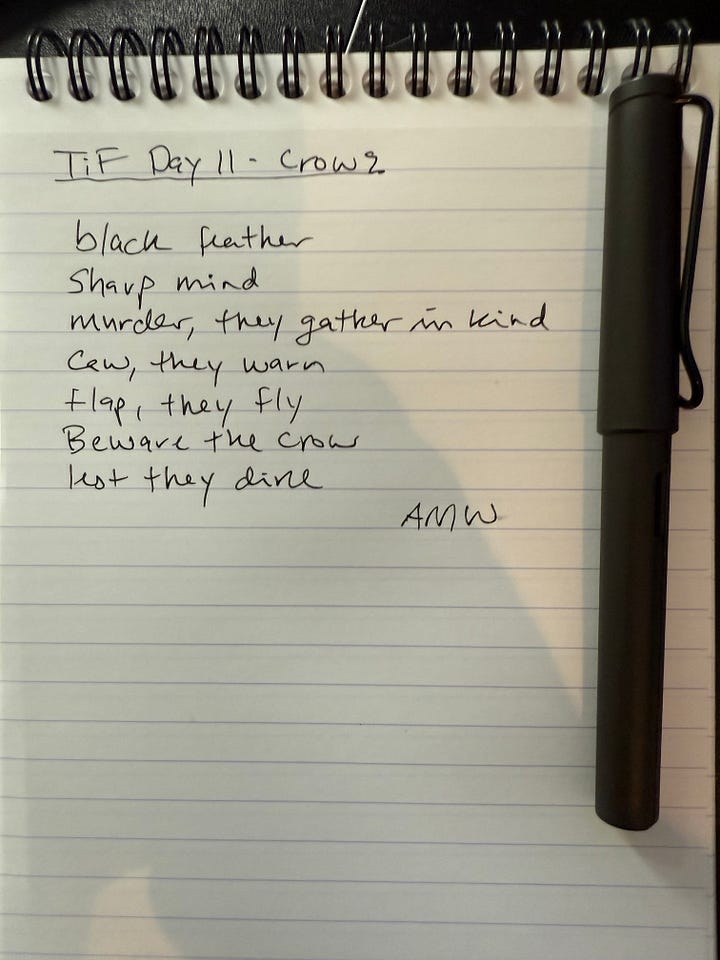 TiF Day 11 - Crows
black feather
Sharp mind
murder, they gather in kind
Caw, they warn
flap, they fly
Beware the crow
lest they dine
AMW